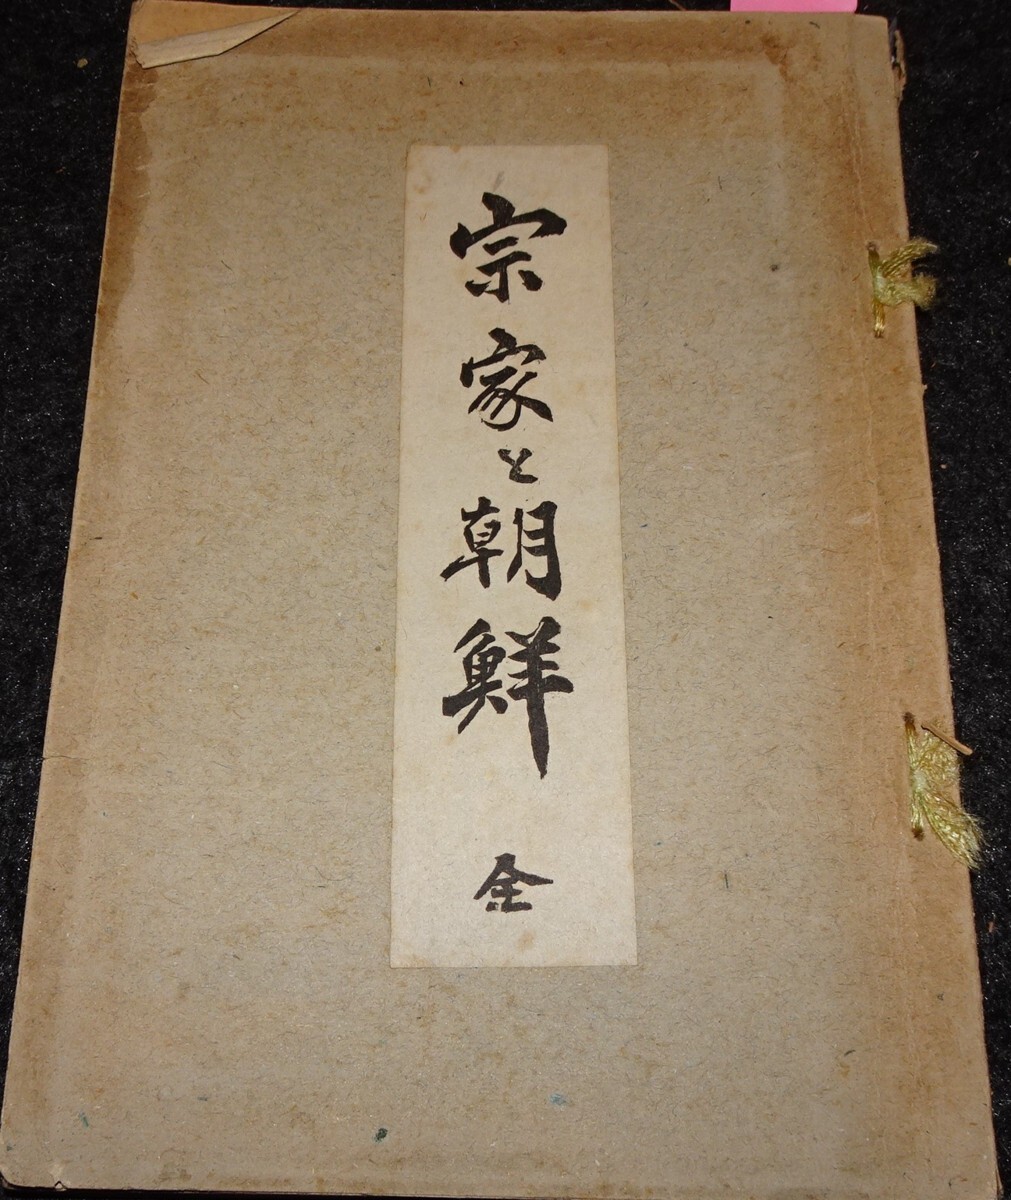 宗家と朝鮮 全